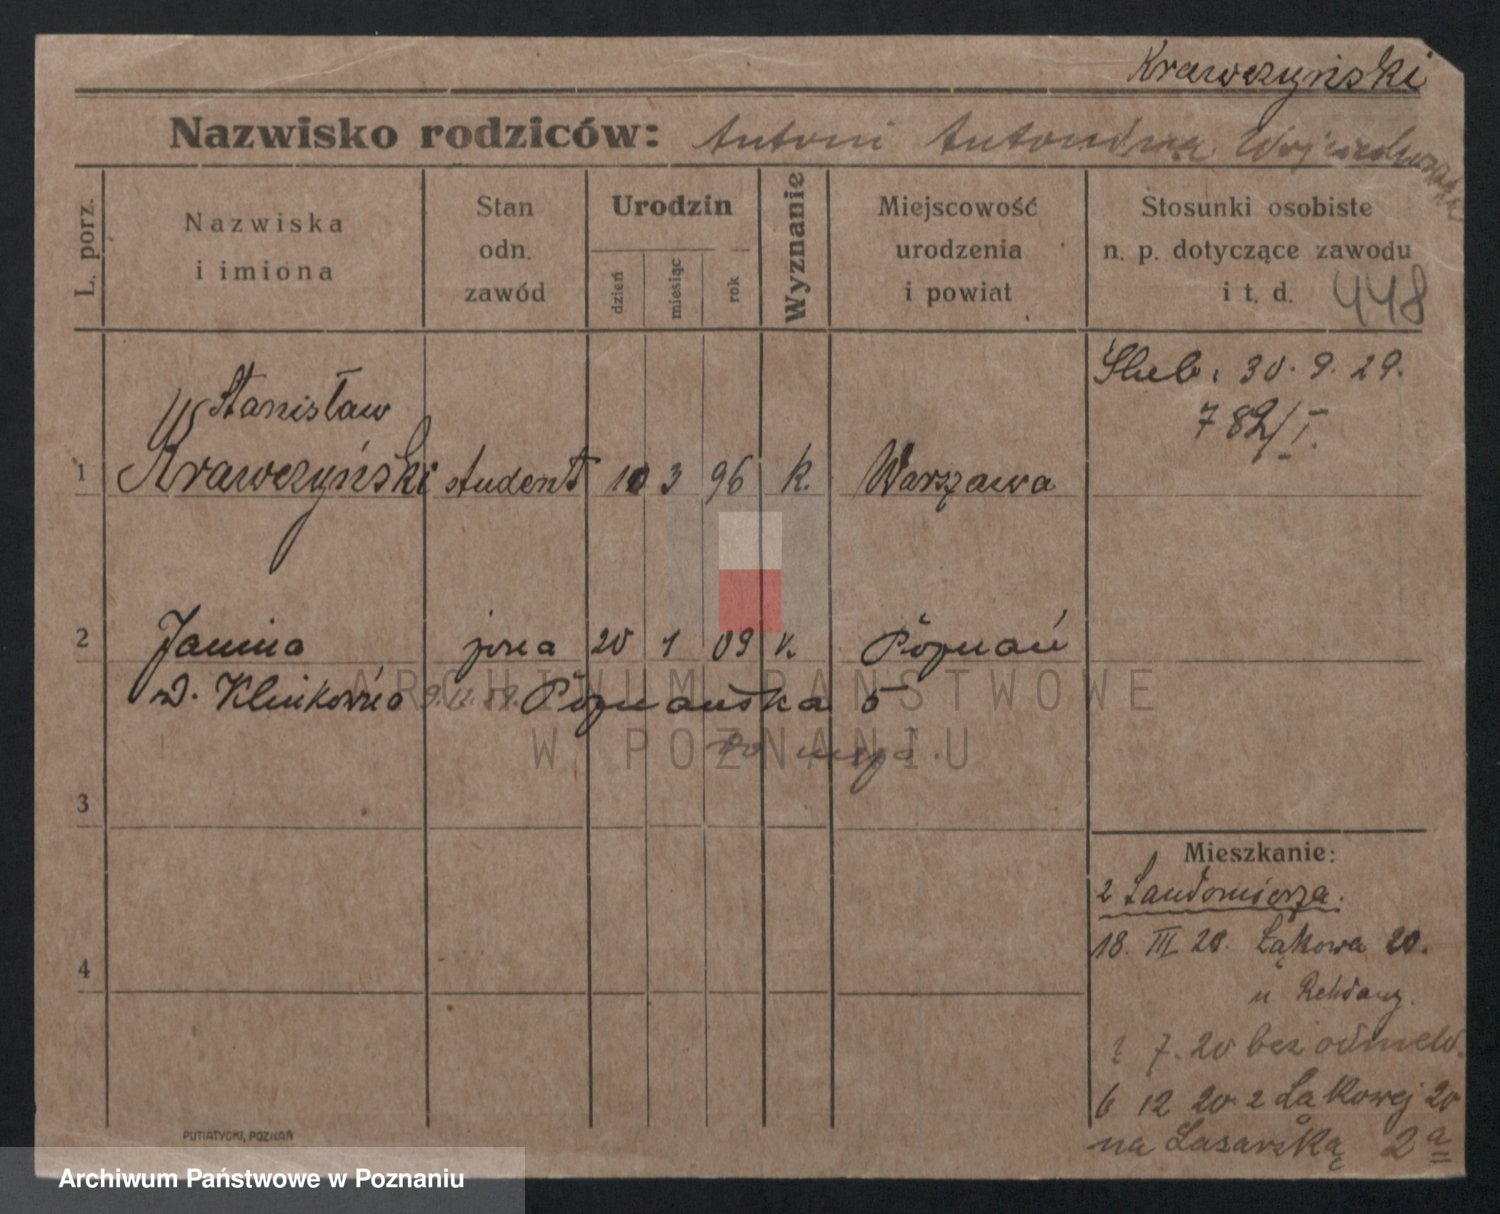 Krawczyński
Nazwisko rodziców: Antoni Antonina
L. porz.
Nazwiska
i imiona
Stan
odn.
zawód
Urodzin
dzień
miesiąc
rok
Wyznanie
Miejscowość
urodzenia
i powiat
Stosunki osobiste
n. p. dotyczące zawodu
i t. d. 448
Ślub: 30. 9. 29.
782/I.
Stanisław
1 Krawczyński student 10 3 96 k. Warszawa
2 Janina żona 20 1 09 k. Poznań
z d. Klinkówna Poznańska 5
ARCHIWUM PAŃSTWOWE
W POZNANIU
3
Mieszkanie:
z Sandomierza.
18. III 20. Łąkowa 20.
u
4
7. 20 bez odmeld.
6 12 20 z Łąkowej 20
na Łazarską 2a
PUTIATYCKI, POZNAŃ
Archiwum Państwowe w Poznaniu